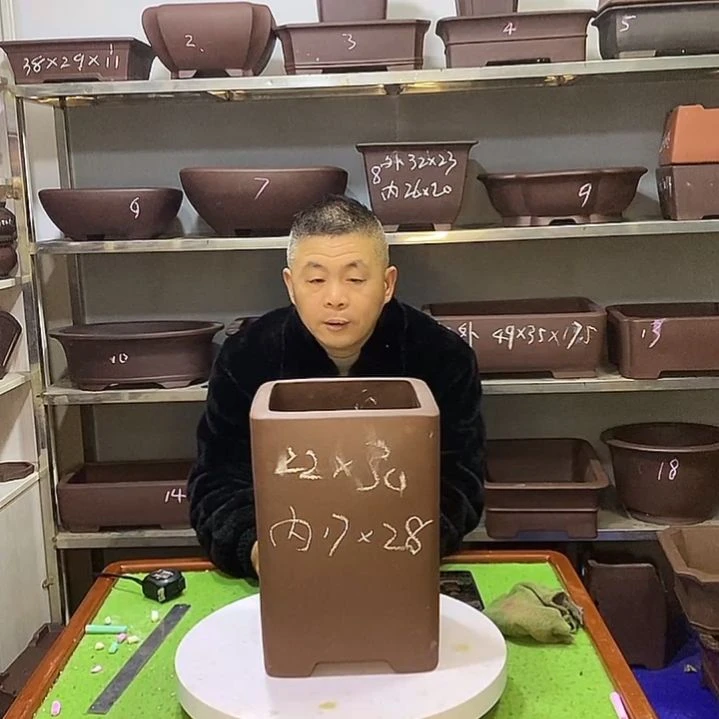 38×29×11
2.
3
4
5
6
7
8外32×23
内26×20
9
10
外 49×35×17.5
13
14
18
22×30
内17×28